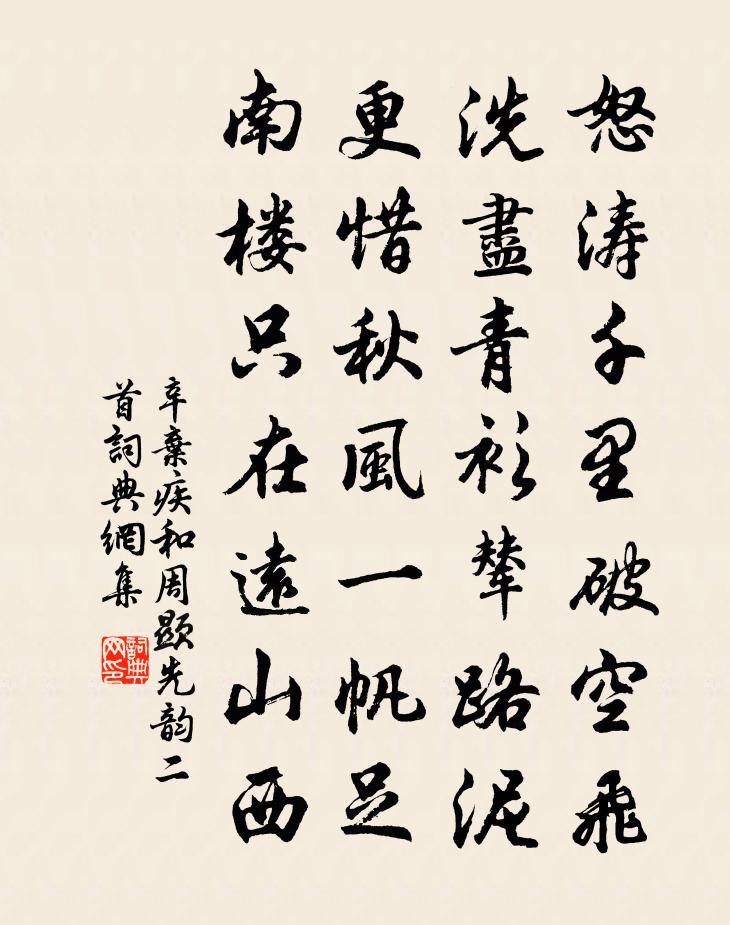 怒涛千里破空飛
洗盡青衫輦路泥
更惜秋風一帆足
南楼只在遠山西
辛棄疾和周顯先韵二
首詞典網集
詞典网印